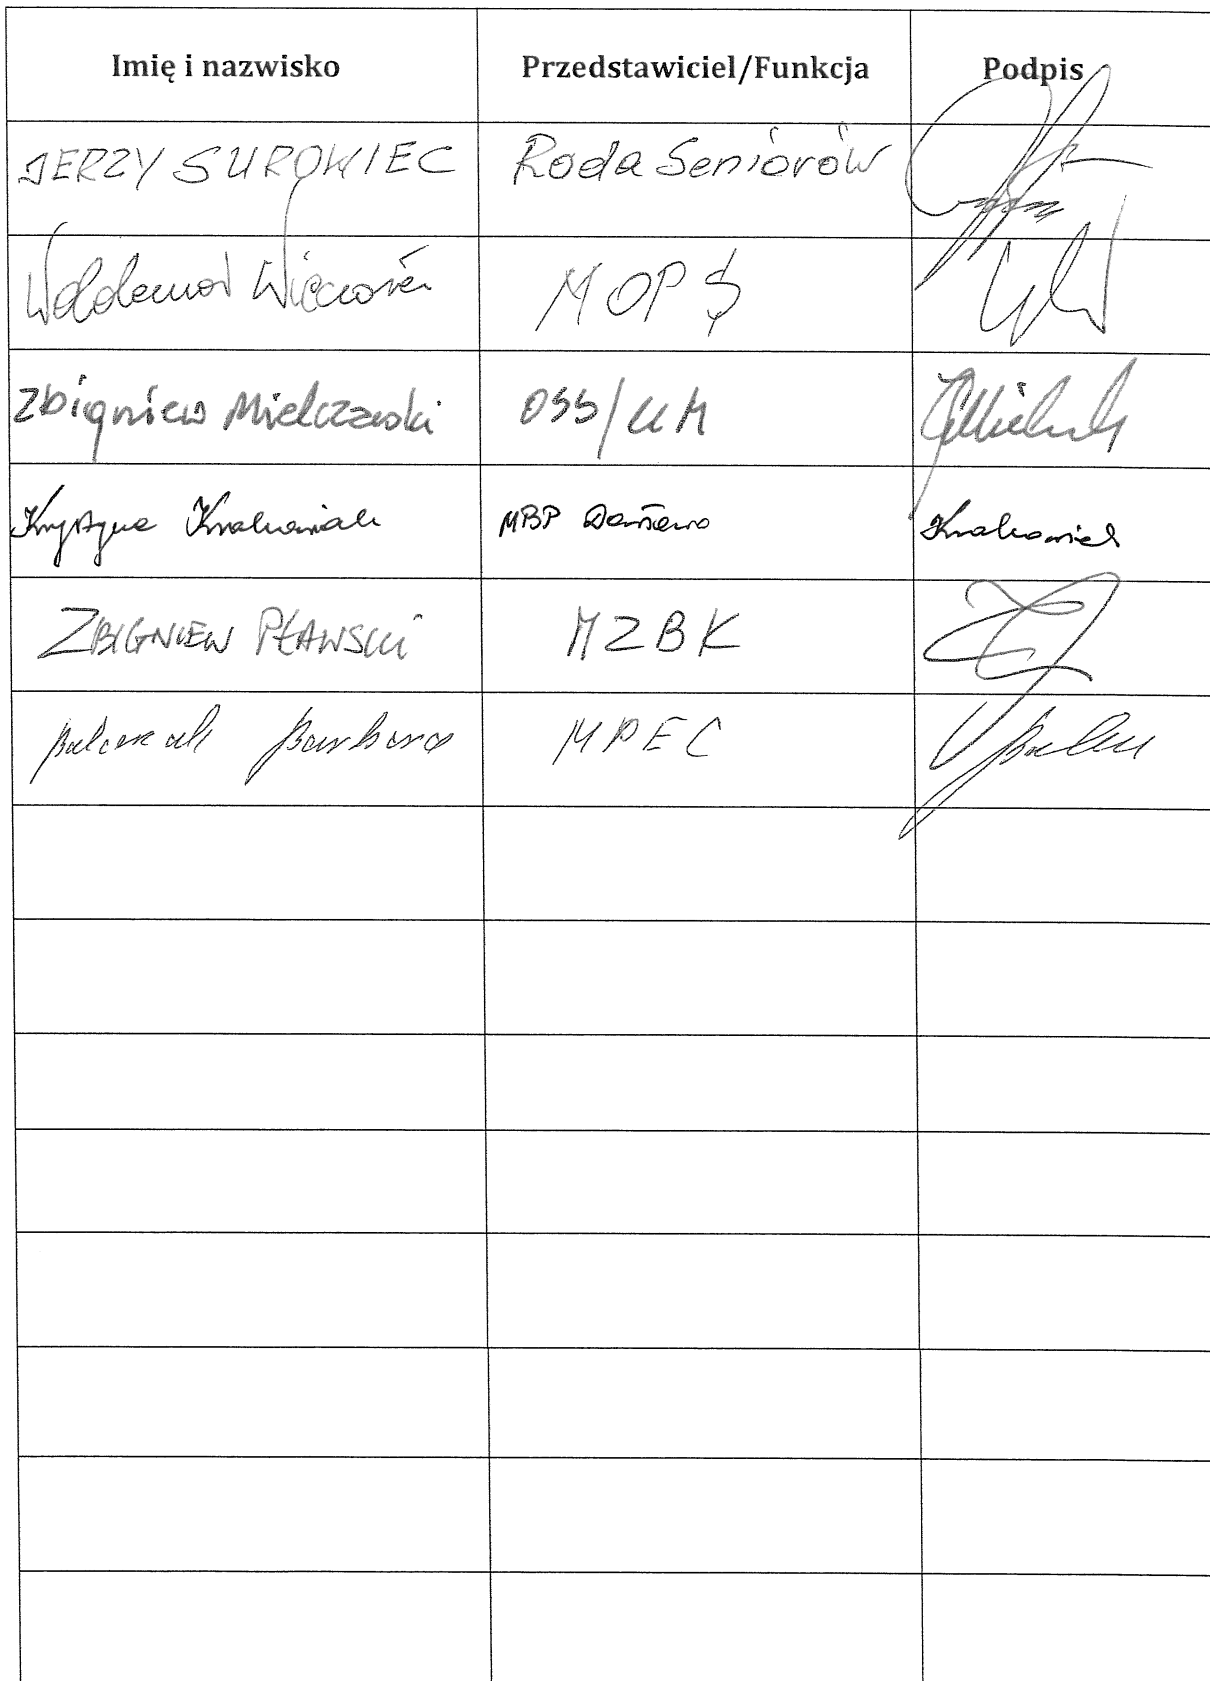 Imię i nazwisko Przedstawiciel/Funkcja Podpis
JERZY SUROWIEC Rada Seniorów
Waldemar MOPS
Zbigniew Mielczarski OSS/UM
Krystyna Krakowiak MBP Krakowiak
ZBIGNIEW PŁAWSKI MZBK
Barbara MPEC